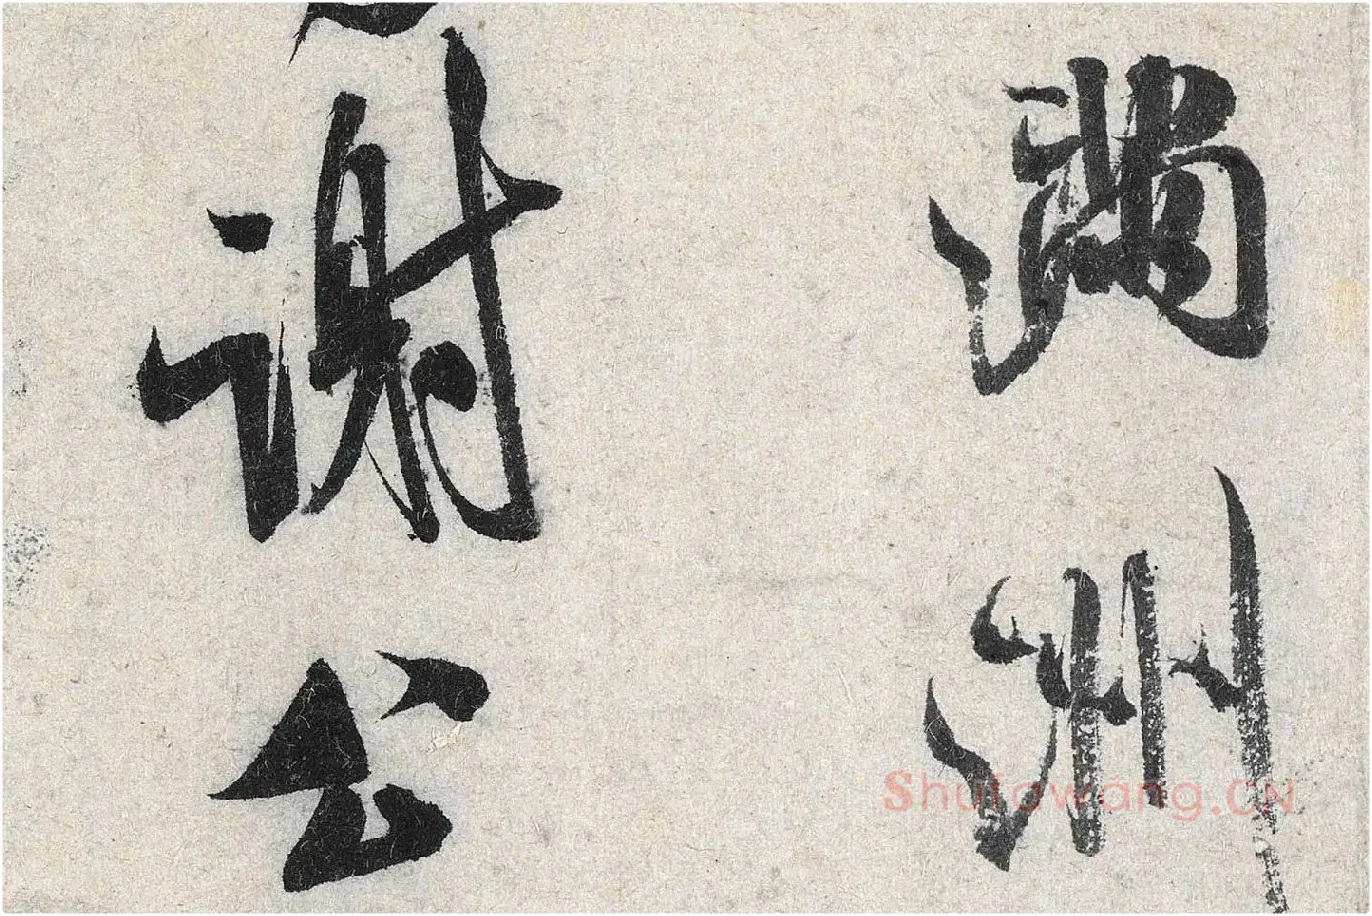 滿洲
謝公
Shufawang.CN